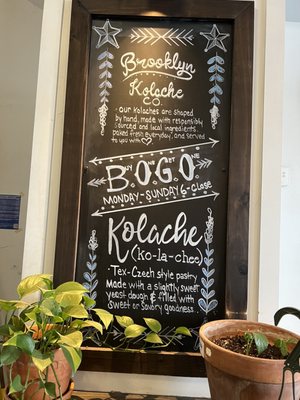 Brooklyn
Kolache
CO.
- our Kolaches are shaped
by hand, made with responsibly
sourced and local ingredients,
baked fresh everyday, and served
to you with
BUY GET
B.O.G.O
MONDAY-SUNDAY 6-Close
Kolache
(ko-la-chee)
- Tex-Czech style pastry
Made with a slightly sweet
yeast dough & filled with
Sweet or Savory goodness.